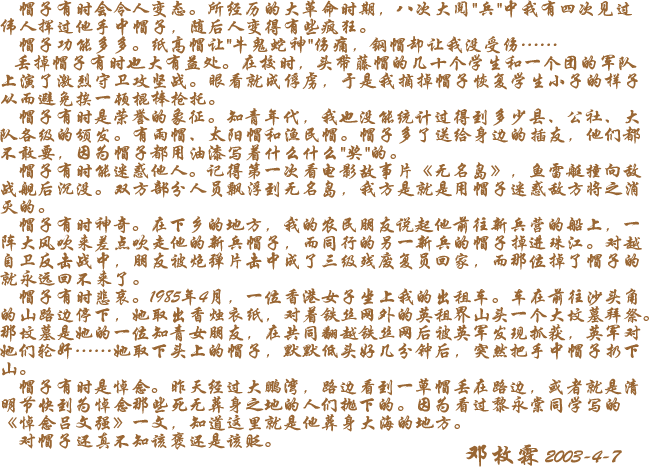 帽子有时会令人变态。所经历的大革命时期，八次大阅"兵"中我有四次见过
伟人挥过他手中帽子，随后人变得有些疯狂。
帽子功能多多。纸高帽让"牛鬼蛇神"伤痛，钢帽却让我没受伤……
丢掉帽子有时也大有益处。在校时，头带藤帽的几十个学生和一个团的军队
上演了激烈守卫攻坚战。眼看就成俘虏，于是我摘掉帽子恢复学生小子的样子
从而避免挨一顿棍棒枪托。
帽子有时是荣誉的象征。知青年代，我也没能统计过得到多少县、公社、大
队各级的颁发。有雨帽、太阳帽和渔民帽。帽子多了送给身边的插友，他们都
不敢要，因为帽子都用油漆写着什么什么"奖"的。
帽子有时能迷惑他人。记得第一次看电影故事片《无名岛》，鱼雷艇撞向敌
战舰后沉没。双方部分人员飘浮到无名岛，我方是就是用帽子迷惑敌方将之消
灭的。
帽子有时神奇。在下乡的地方，我的农民朋友说起他前往新兵营的船上，一
阵大风吹来差点吹走他的新兵帽子，而同行的另一新兵的帽子掉进珠江。对越
自卫反击战中，朋友被炮弹片击中成了三级残废复员回家，而那位掉了帽子的
就永远回不来了。
帽子有时悲哀。1985年4月，一位香港女子坐上我的出租车。车在前往沙头角
的山路边停下，她取出香烛衣纸，对着铁丝网外的英租界山头一个大坟墓拜祭。
那坟墓是她的一位知青女朋友，在共同翻越铁丝网后被英军发现抓获，英军对
她们轮奸……她取下头上的帽子，默默低头好几分钟后，突然把手中帽子扔下
山。
帽子有时是悼念。昨天经过大鹏湾，路边看到一草帽丢在路边，或者就是清
明节快到为悼念那些死无葬身之地的人们抛下的。因为看过黎永棠同学写的
《悼念吕文强》一文，知道这里就是他葬身大海的地方。
对帽子还真不知该褒还是该贬。
邓枝霖 2003-4-7